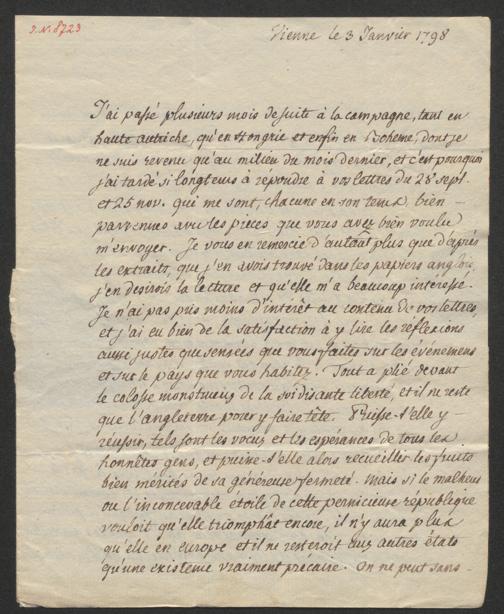 J.N. 8723
Vienne le 3 Janvier 1798
J'ai passé plusieurs mois de suite à la campagne, tant en
haute autriche, qu'en Hongrie et enfin en Boheme, dont je
ne suis revenu qu'au milieu du mois dernier, et c'est pourquoi
j'ai tardé si longtems à répondre à vos lettres du 28 sept.
et 25 nov. qui me sont, chacune en son tems, bien
parvenues avec les pieces que vous avez bien voulu
m'envoyer. Je vous en remercie d'autant plus que d'après
les extraits, que j'en avois trouvé dans les papiers anglois,
j'en desirois la lecture et qu'elle m'a beaucoup interessé.
Je n'ai pas pris moins d'intérêt au contenu de vos lettres,
et j'ai eu bien de la satisfaction à y lire les réflexions
aussi justes que sensées que vous faites sur les événemens
et sur le pays que vous habitez. Tout a plié devant
le colosse monstrueux de la soi disante liberté, et il ne reste
que l'angleterre pour y faire tête. Puisse-t'elle y
réussir, tels sont les voeux et les espérances de tous les
honnêtes gens, et puisse-t'elle alors recueillir les fruits
bien mérités de sa généreuse fermeté. Mais si le malheur
ou l'inconcevable étoile de cette pernicieuse république
vouloit qu'elle triomphât encore, il n'y aura plus
qu'elle en europe et il ne resteroit aux autres états
qu'une existence vraiment précaire. On ne peut sans